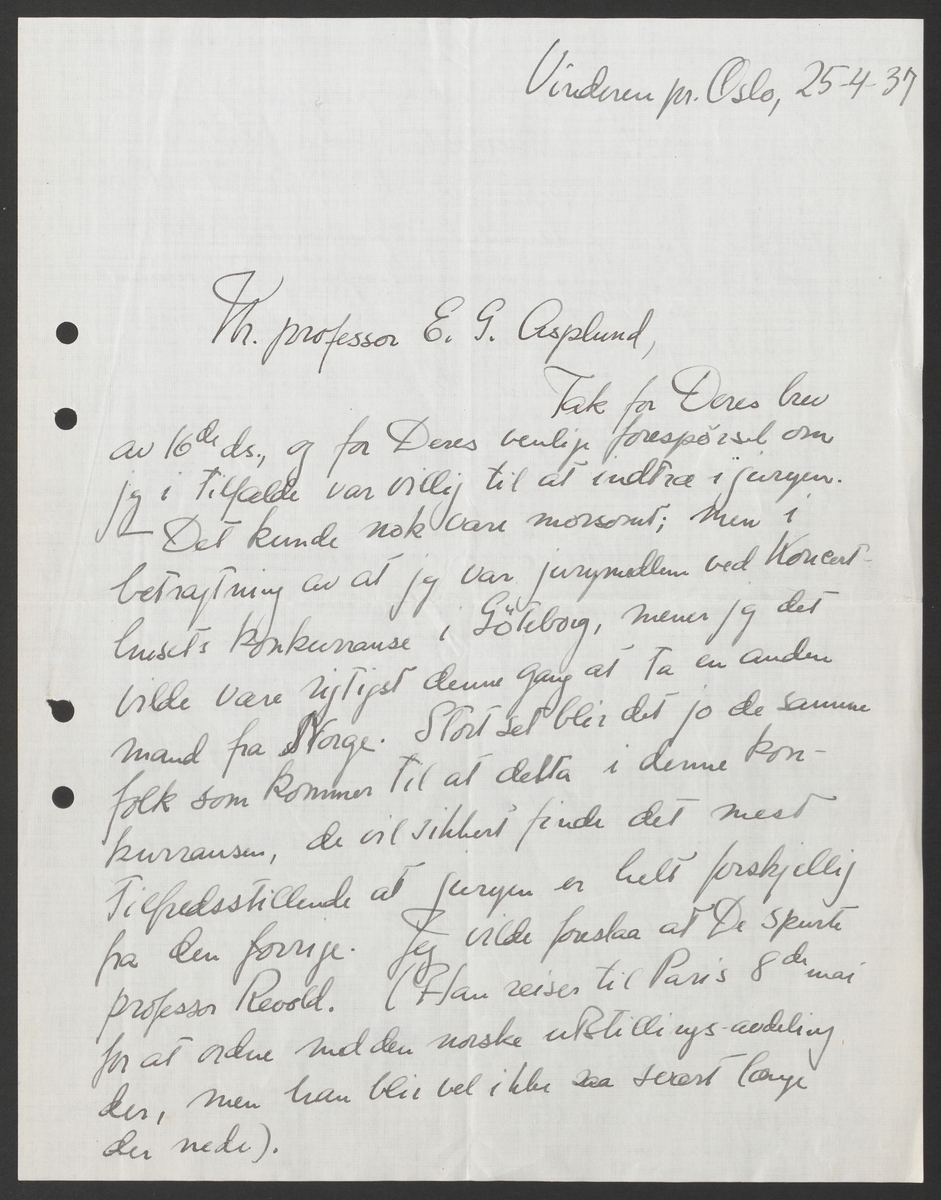 Vinderen pr. Oslo, 25-4-37
Hr. professor E. G. Asplund,
Tak for Deres brev
av 16de ds., og for Deres venlige forespørsel om
jeg i tilfælde var villig til at indtræ i juryen.
— Det kunde nok være morsomt; men i
betragtning av at jeg var jurymedlem ved Koncert-
husets konkurranse i Göteborg, mener jeg det
vilde være rigtigst denne gang at ta en anden
mand fra Norge. Stort set blir det jo de samme
folk som kommer til at delta i denne kon-
kurransen, de vil sikkert finde det mest
tilfredsstillende at juryen er helt forskjellig
fra den forrige. Jeg vilde foreslaa at De spurte
professor Revold. (Han reiser til Paris 8de mai
for at ordne med den norske utstillings-avdeling
der, men han blir vel ikke saa svært længe
der nede).